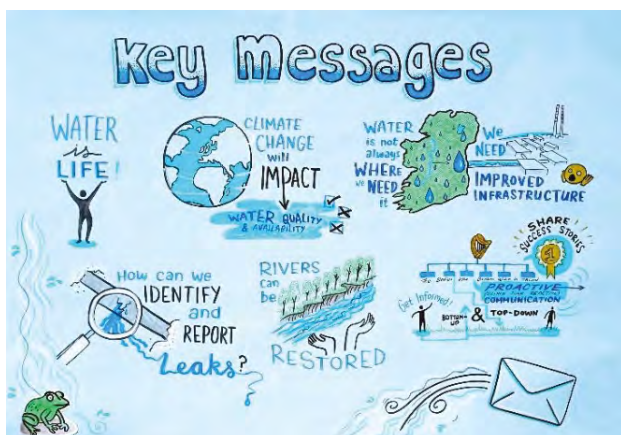 Key Messages
WATER
is
LIFE!
CLIMATE
CHANGE
will
IMPACT
WATER QUALITY
& AVAILABILITY
WATER
is not
always
WHERE
we NEED
it
We
NEED
IMPROVED
INFRASTRUCTURE
How can we
IDENTIFY
and
REPORT
Leaks?
RIVERS
can
be
RESTORED
SHARE
SUCCESS STORIES
1
PROACTIVE
COMMUNICATION
Get Informed!
BOTTOM-
UP
& TOP-DOWN